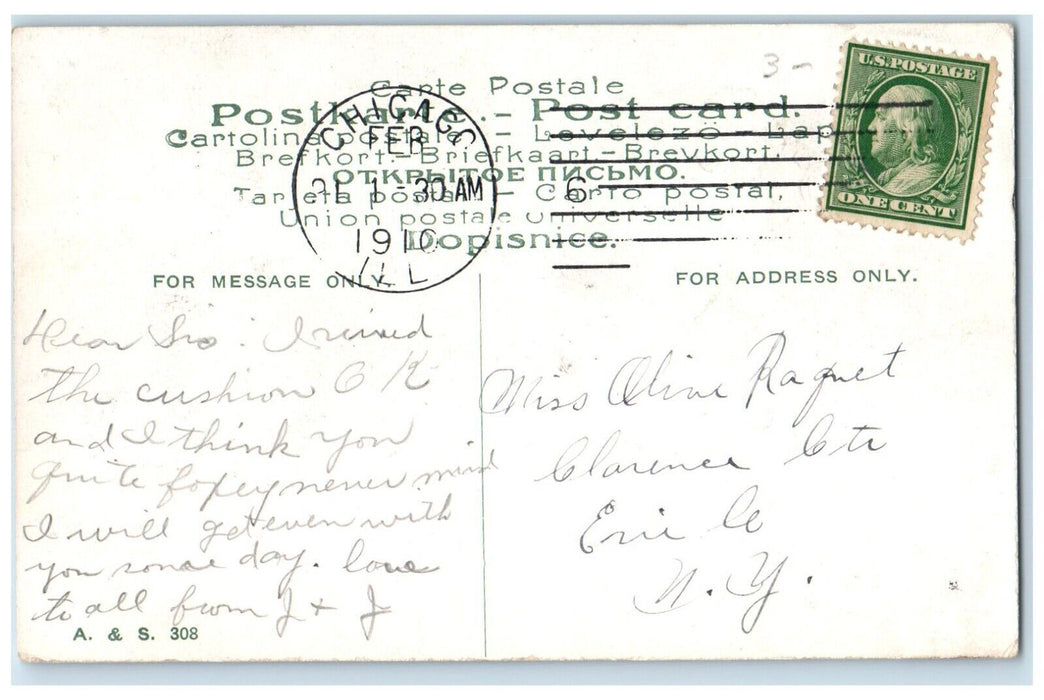 3-
U.S. POSTAGE
ONE CENT
Carte Postale
Postkarte. – Post card.
Cartolina postale – Levelező-Lap
Brefkort – Briefkaart – Brevkort.
ОТКРЫТОЕ ПИСЬМО.
Tarjeta postal – Carto postal,
Union postale universelle
Dopisnice.
CHICAGO
FEB
21 1-30 AM
1910
ILL
6
FOR MESSAGE ONLY.
FOR ADDRESS ONLY.
Dear Sis: I received
the cushion O K
and I think you
quite foxey never mind
I will get even with
you some day. love
to all from J + J
A. & S. 308
Miss Oline Raquet
Clarence Ctr
Erie Co
N. Y.